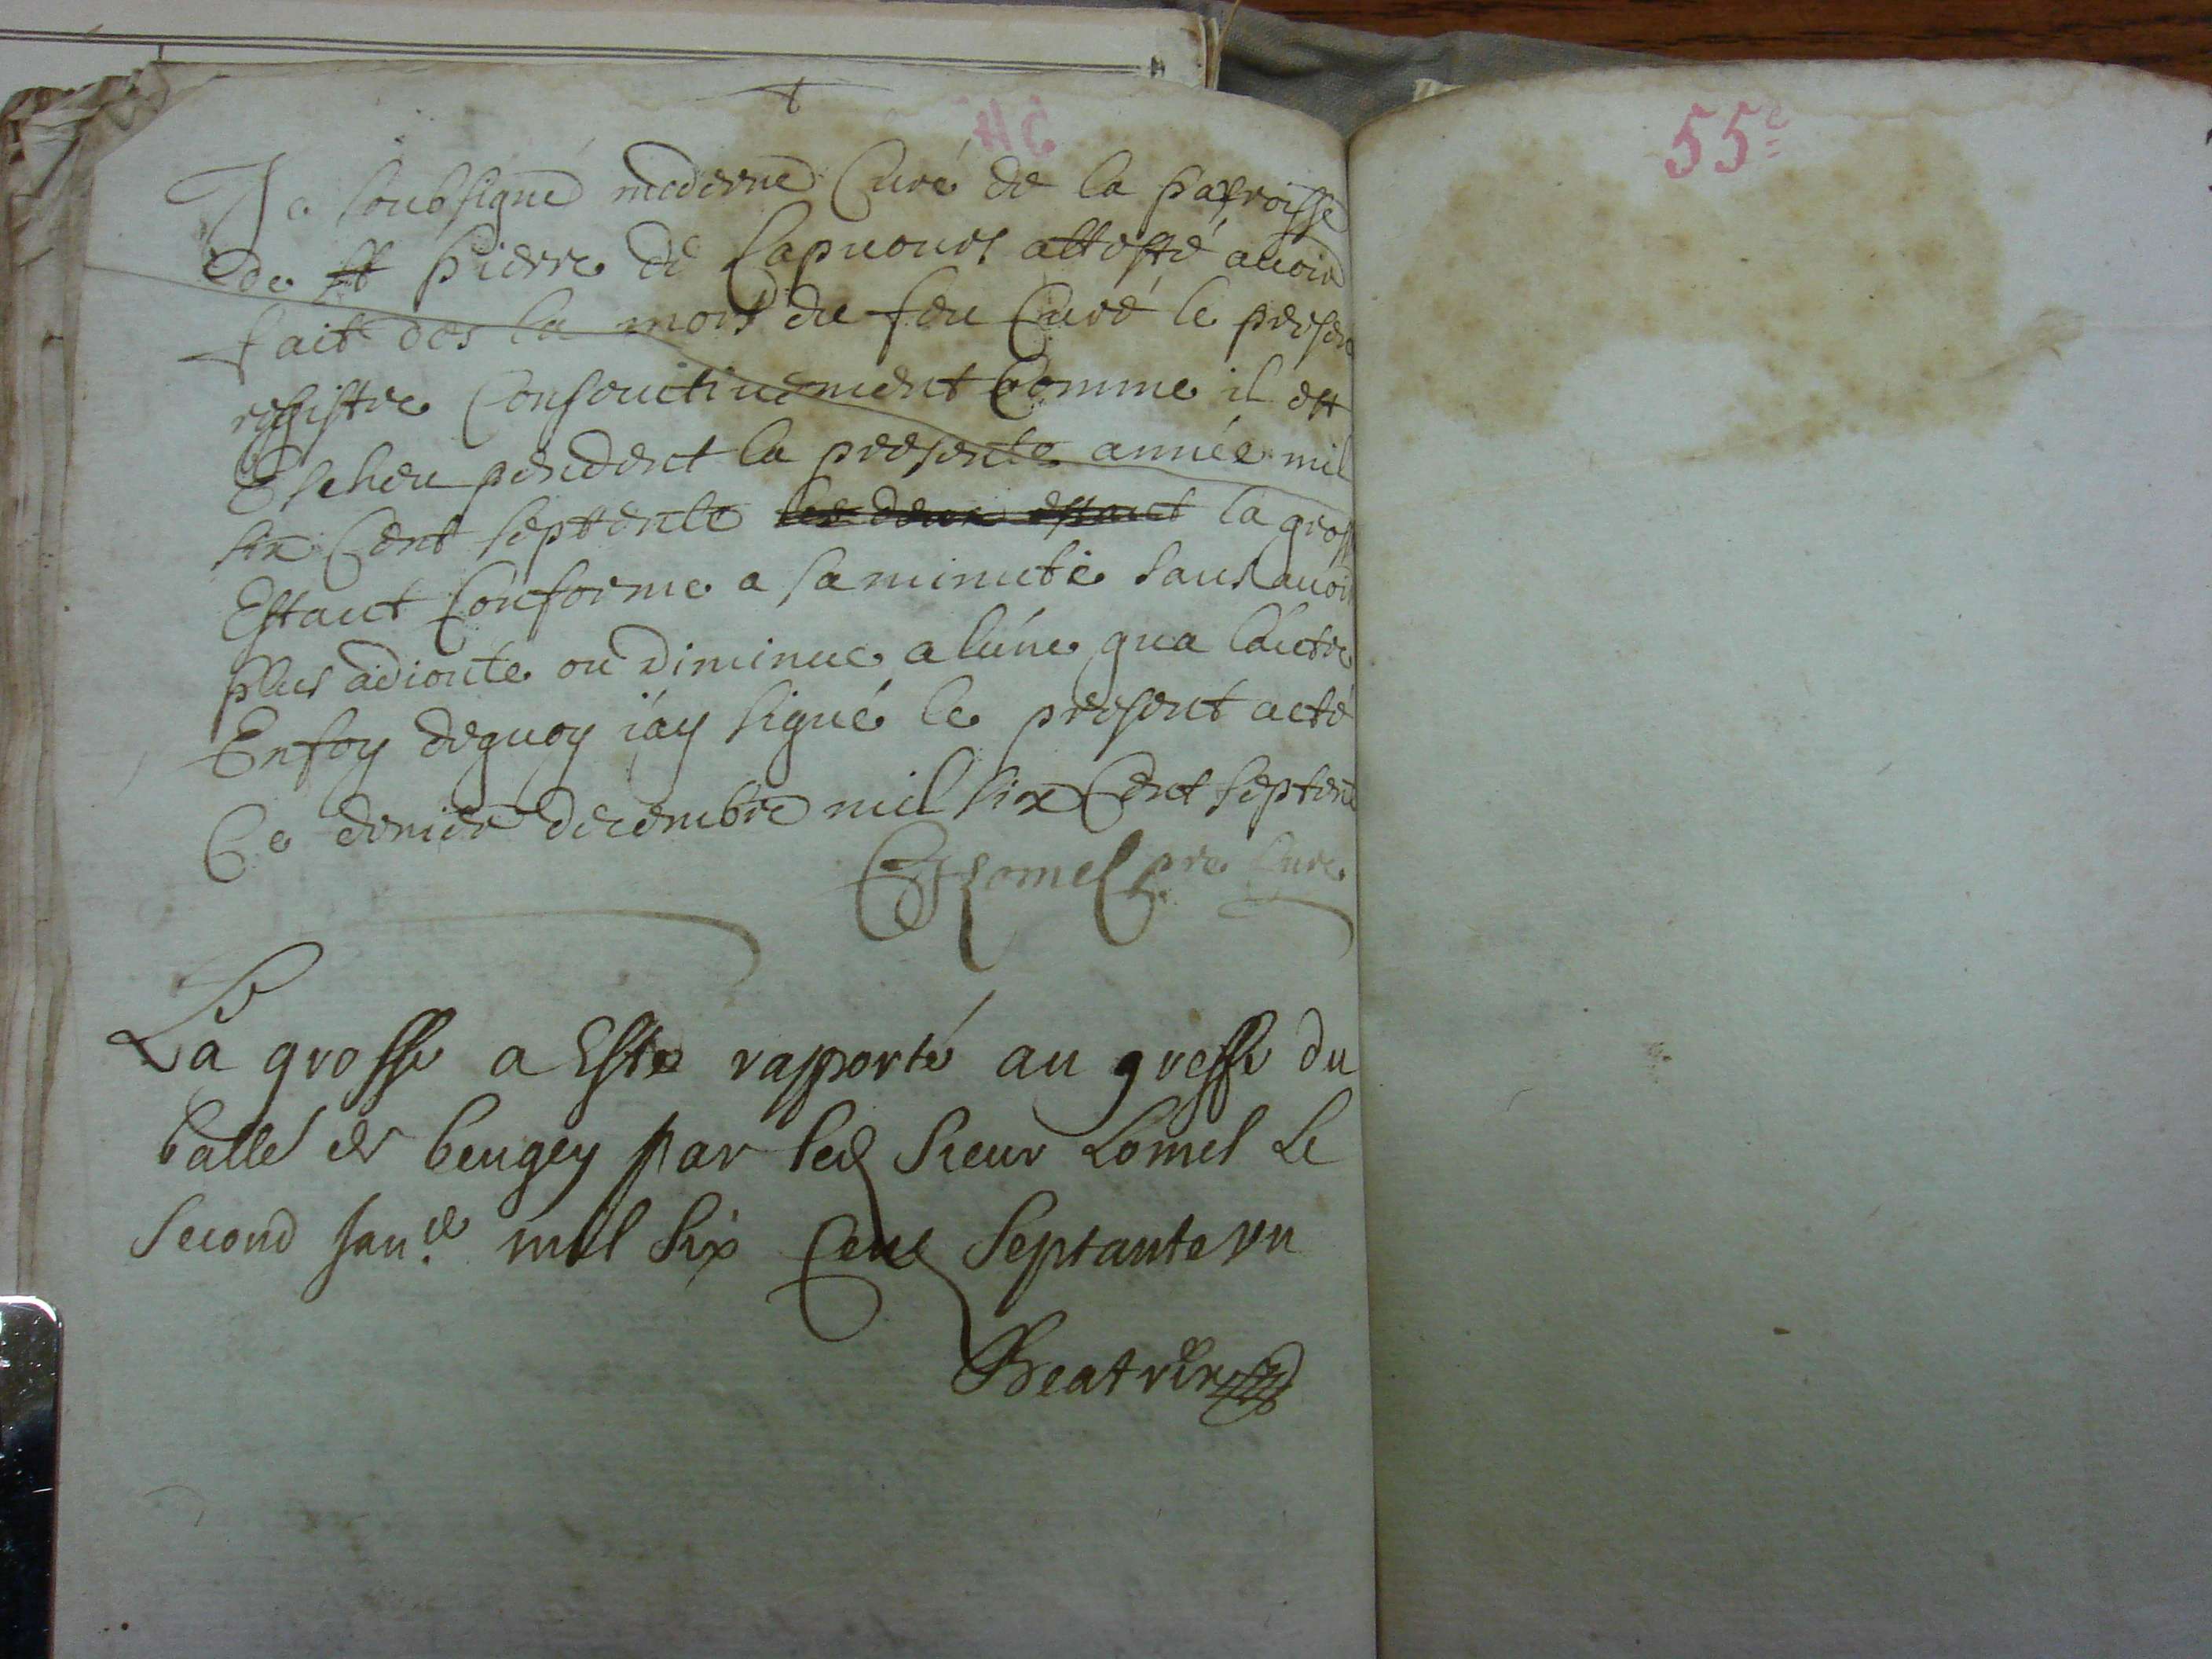 55e
Je soubsigné moderne Curé de la parroisse
de St pierre de Lagnouos atteste avoir
fait des la mort du feu Curé le presen
registre Consecutivement Comme il est
Escheu pendent la presente année mil
six Cent septente les deux estant la gross
Estant Conforme a sa minute sans avoir
plus adiouté ou diminue a lune qua lautre
Enfoy dequoy iay signé le present acte
Ce dernier decembre mil six Cent septen
Lomel pre Cure
La grosse a Este rapporté au greffe du
balle de beugey par led sieur Lomel Le
second Janer mil Six Cens Septante vn
Beatrix